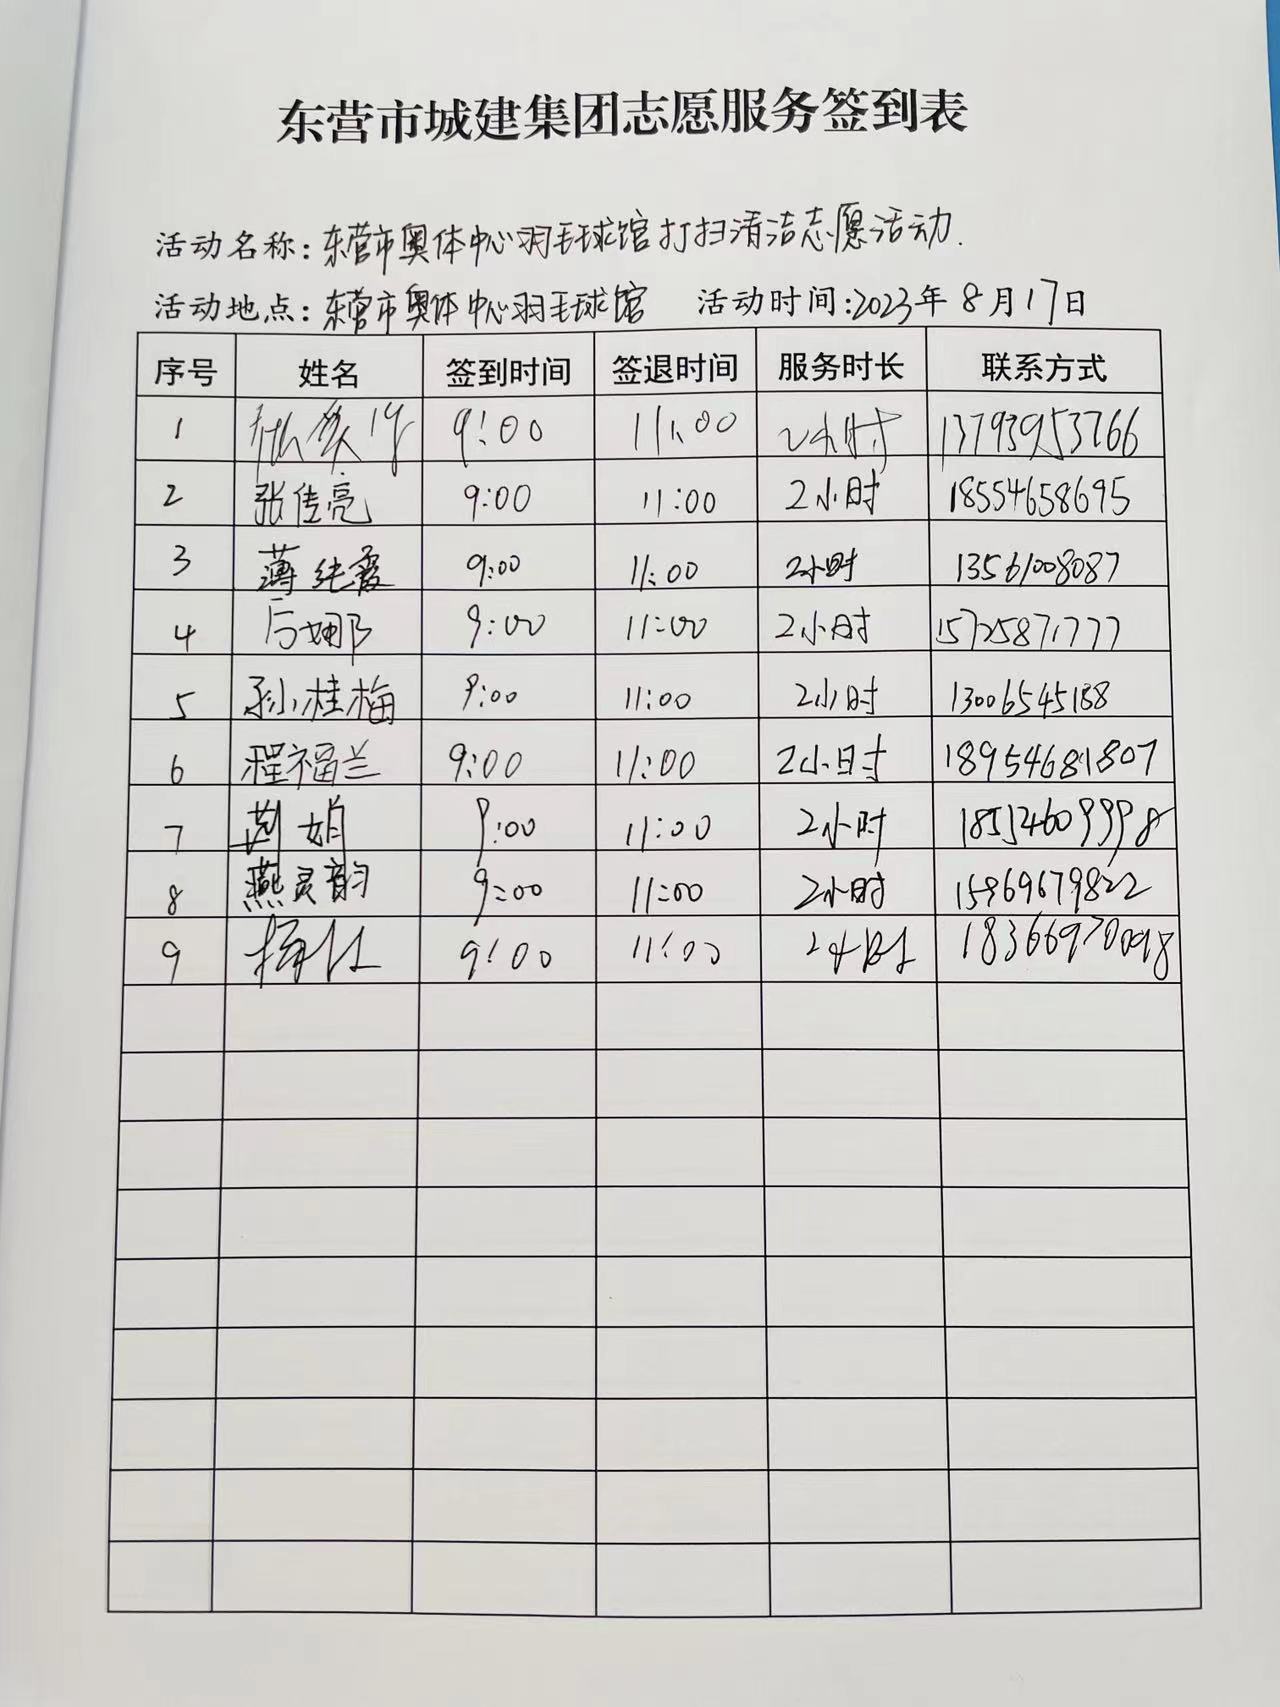 东营市城建集团志愿服务签到表
活动名称：东营市奥体中心羽毛球馆打扫清洁志愿活动.
活动地点：东营市奥体中心羽毛球馆 活动时间：2023年8月17日
序号 姓名 签到时间 签退时间 服务时长 联系方式
1 9:00 11:00 2小时 13793953766
2 张佳亮 9:00 11:00 2小时 18554658695
3 薄纯霞 9:00 11:00 2小时 13561008087
4 9:00 11:00 2小时 15725871777
5 孙桂梅 9:00 11:00 2小时 13006545188
6 程福兰 9:00 11:00 2小时 18954681807
7 9:00 11:00 2小时
8 燕灵韵 9:00 11:00 2小时 15969679822
9 9:00 11:00 2小时 18366970098